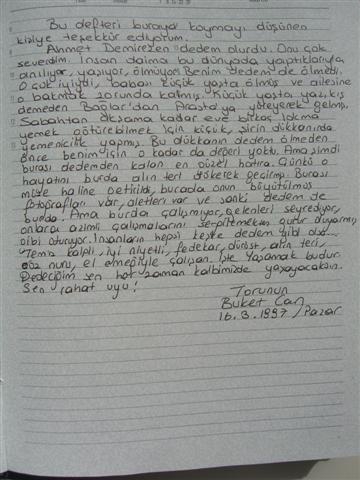 Bu defteri buraya koymayı düşünen
kişiye teşekkür ediyorum.
Ahmet Demirezen dedem olurdu. Onu çok
severdim. İnsan daima bu dünyada yaptıklarıyla
anılıyor, yaşıyor, ölmüyor. Benim dedem de ölmedi.
O çok iyiydi, babası küçük yaşta ölmüş ve ailesine
o bakmak zorunda kalmış. Küçük yaşta yaz, kış
demeden Bağlar'dan Arasta'ya yürüyerek gelmiş.
Sabahtan akşama kadar eve birkaç lokma
yemek götürebilmek için küçük, şirin dükkanında
yemenicilik yapmış. Bu dükkanın dedem ölmeden
önce benim için o kadar da değeri yoktu. Ama şimdi
burası dedemden kalan en güzel hatıra. Çünkü o
hayatını burda alın teri dökerek geçirmiş. Burası
müze haline getirildi, burada onun büyütülmüş
fotoğrafları var, aletleri var ve sanki dedem de
burda! Ama burda çalışmıyor, gelenleri seyrediyor,
onlara azimli çalışmalarını sergilemekten gurur duyarmış
gibi oturuyor. İnsanların hepsi keşke dedem gibi olsa...
Temiz kalpli, iyi niyetli, fedekar, dürüst, alın teri,
göz nuru, el emeğiyle çalışan. İşte yaşamak budur.
Dedeciğim sen her zaman kalbimizde yaşayacaksın.
Sen rahat uyu!
Torunun
Buket Can
16.3.1997 / Pazar